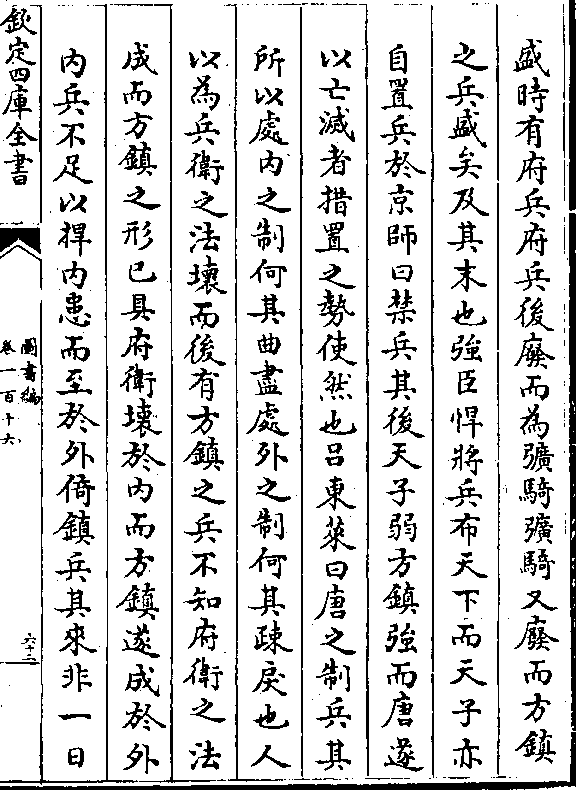 盛時有府兵府兵後廢而為彍騎彍騎又廢而方鎮
之兵盛矣及其末也強臣悍將兵布天下而天子亦
自置兵於京師曰禁兵其後天子弱方鎮強而唐遂
以亡滅者措置之勢使然也呂東萊曰唐之制兵其
所以處内之制何其曲盡處外之制何其疎戾也人
以為兵衛之法壞而後有方鎮之兵不知府衛之法
成而方鎮之形已具府衛壞於内而方鎮遂成於外
内兵不足以捍内患而至於外倚鎮兵其來非一日
欽定四庫全書
圖書編
卷一百十六
六十二